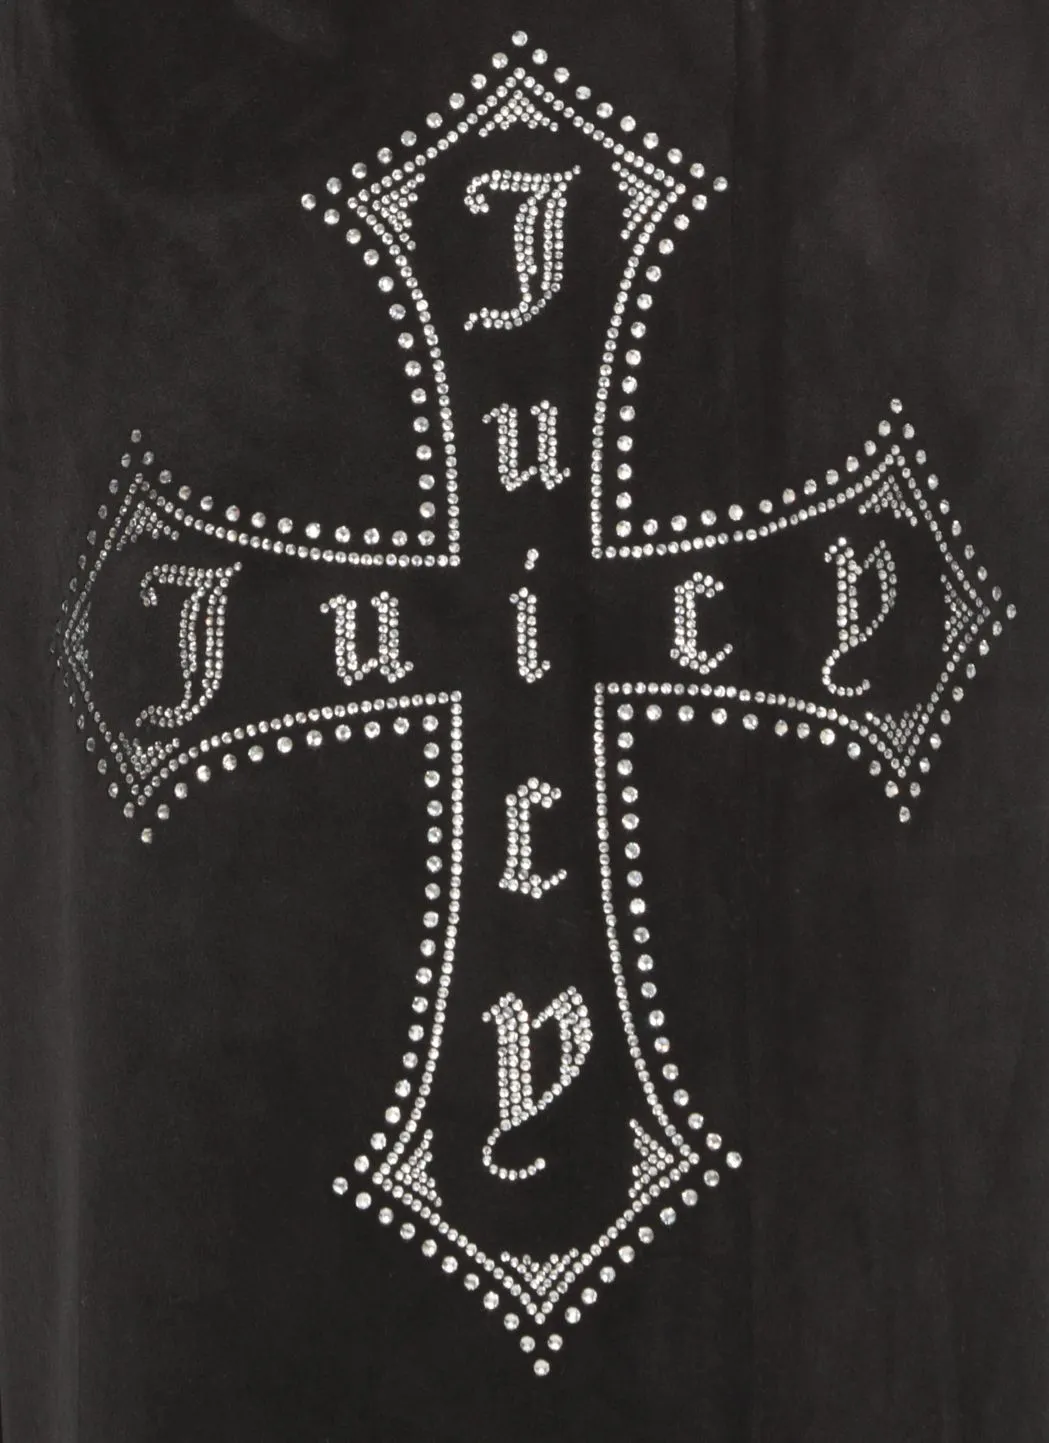 Juicy
Juicy